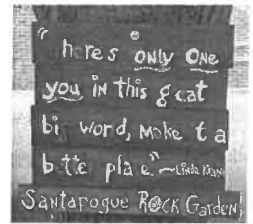 "heres only one
you in this g eat
bi word, make t a
bette pla e." ~Linda
Santapogue Rock Garden